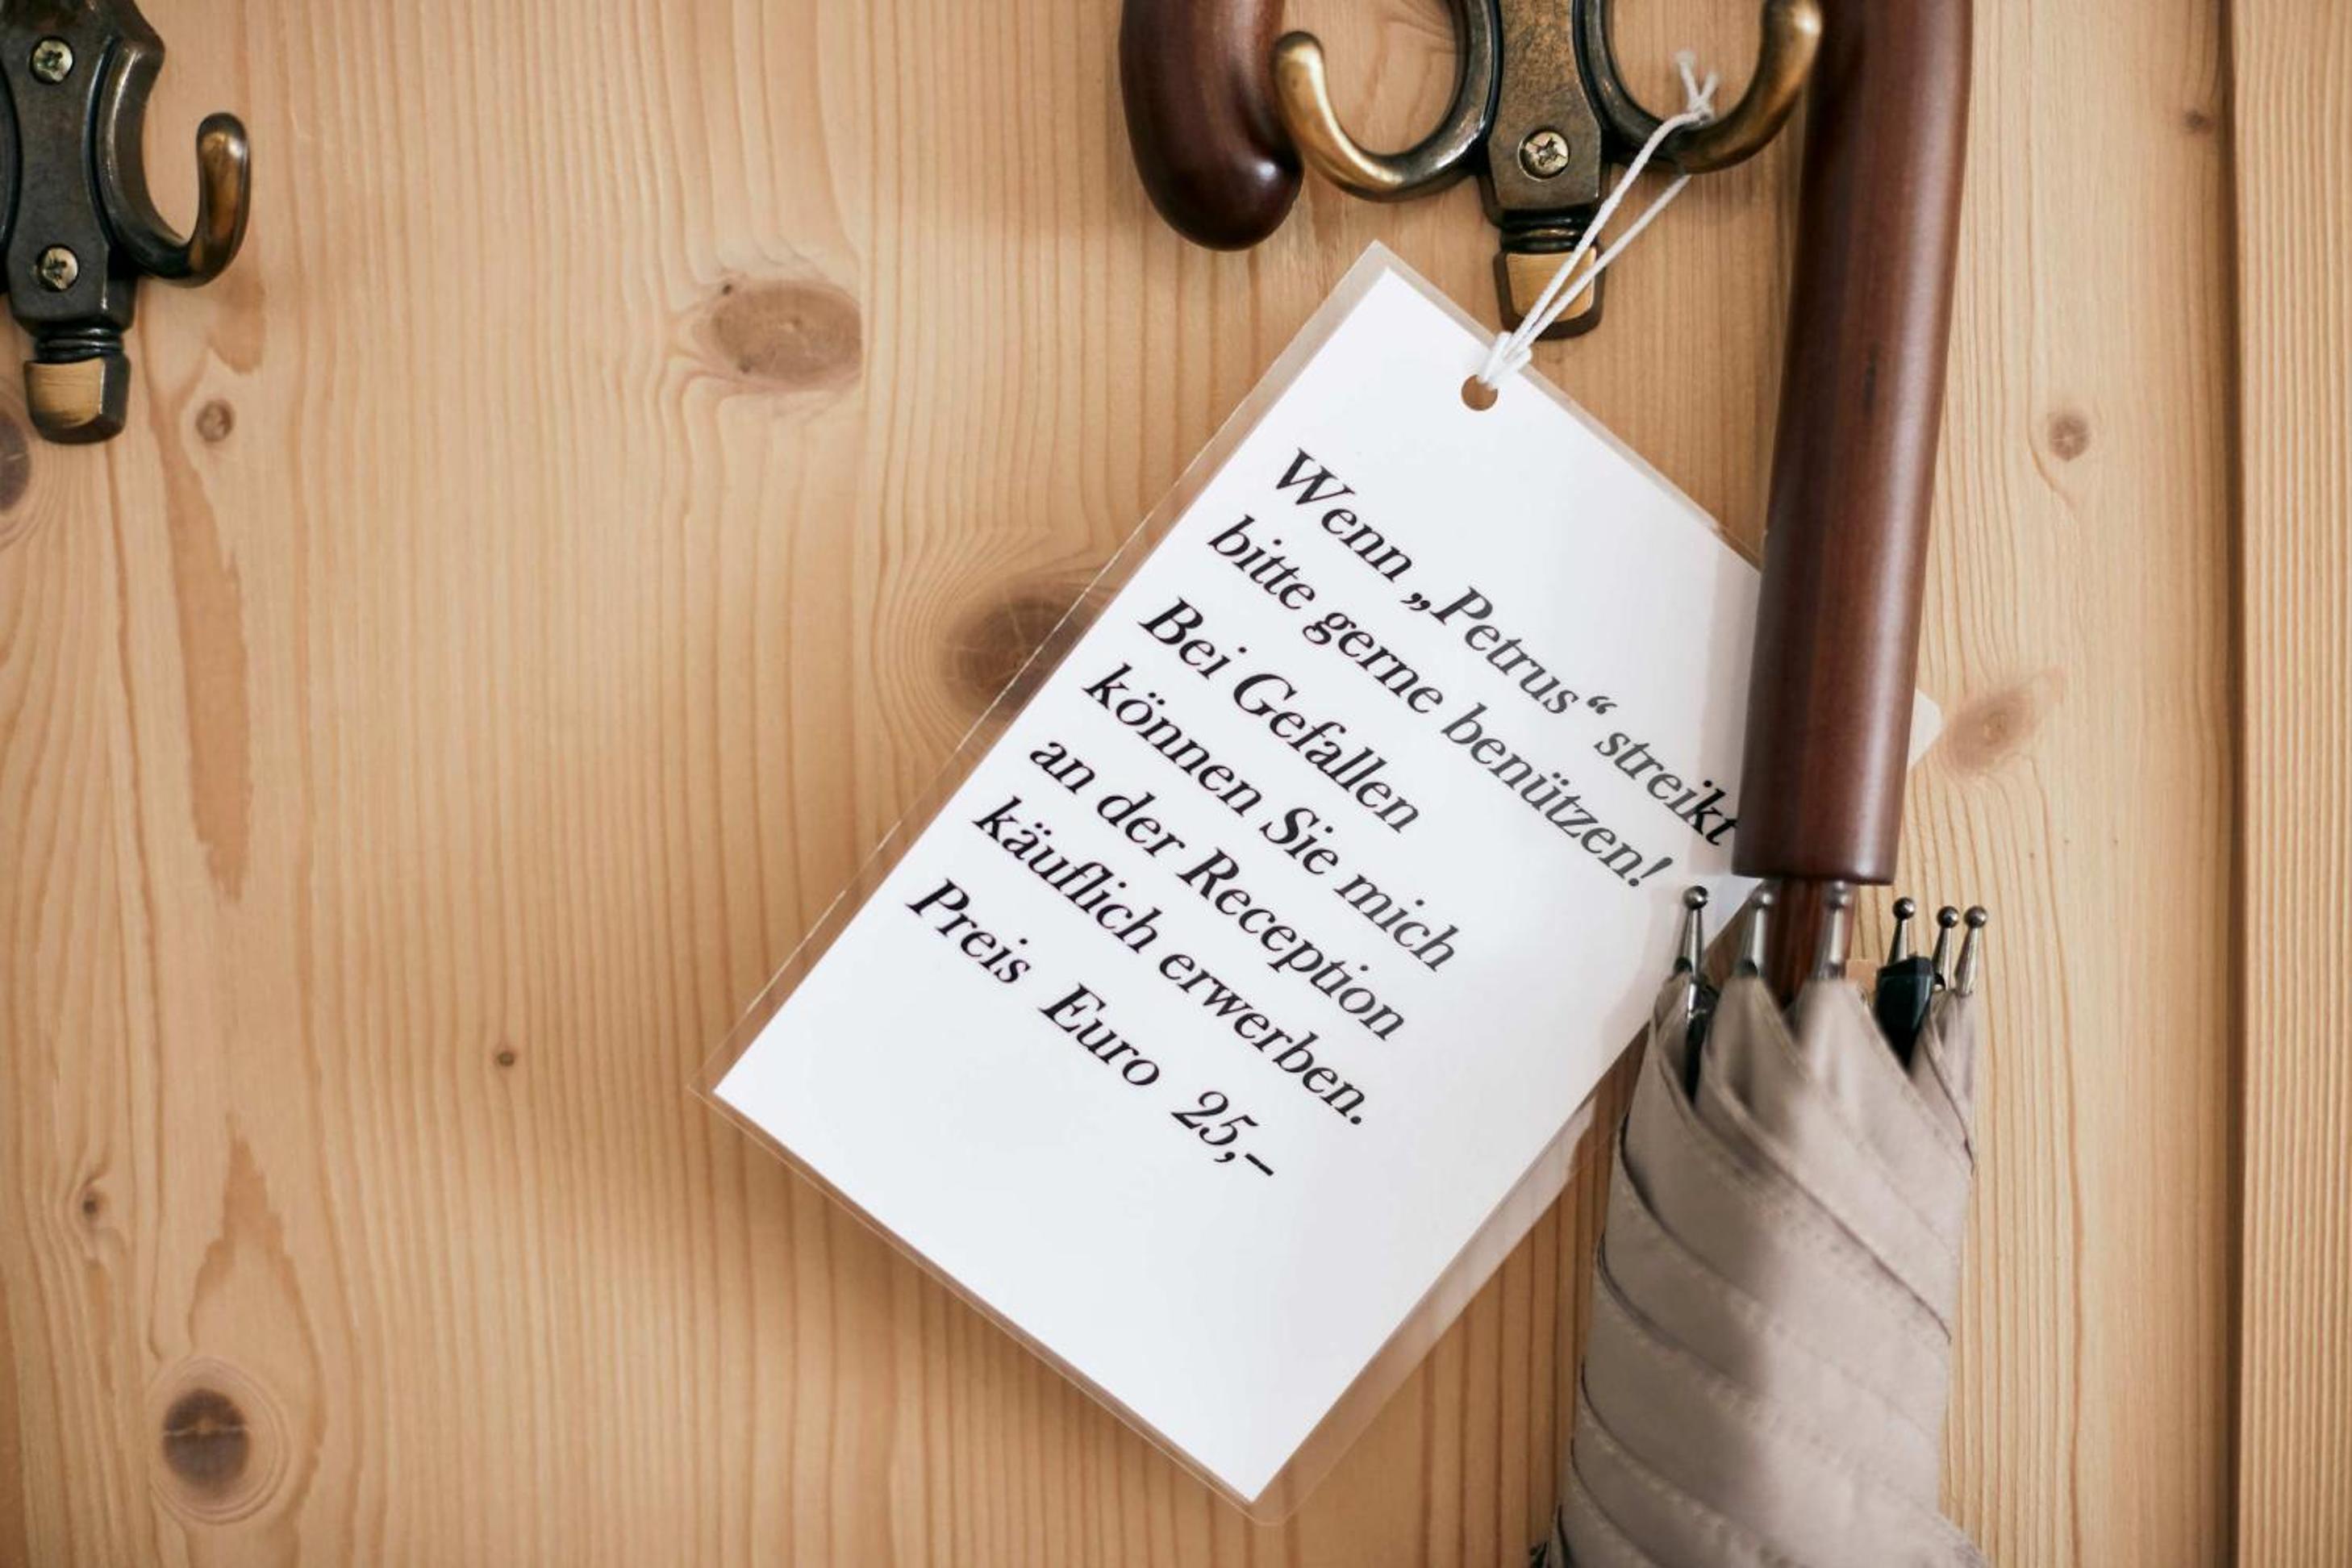 Wenn „Petrus“ streikt
bitte gerne benützen!
Bei Gefallen
können Sie mich
an der Reception
käuflich erwerben.
Preis Euro 25,-